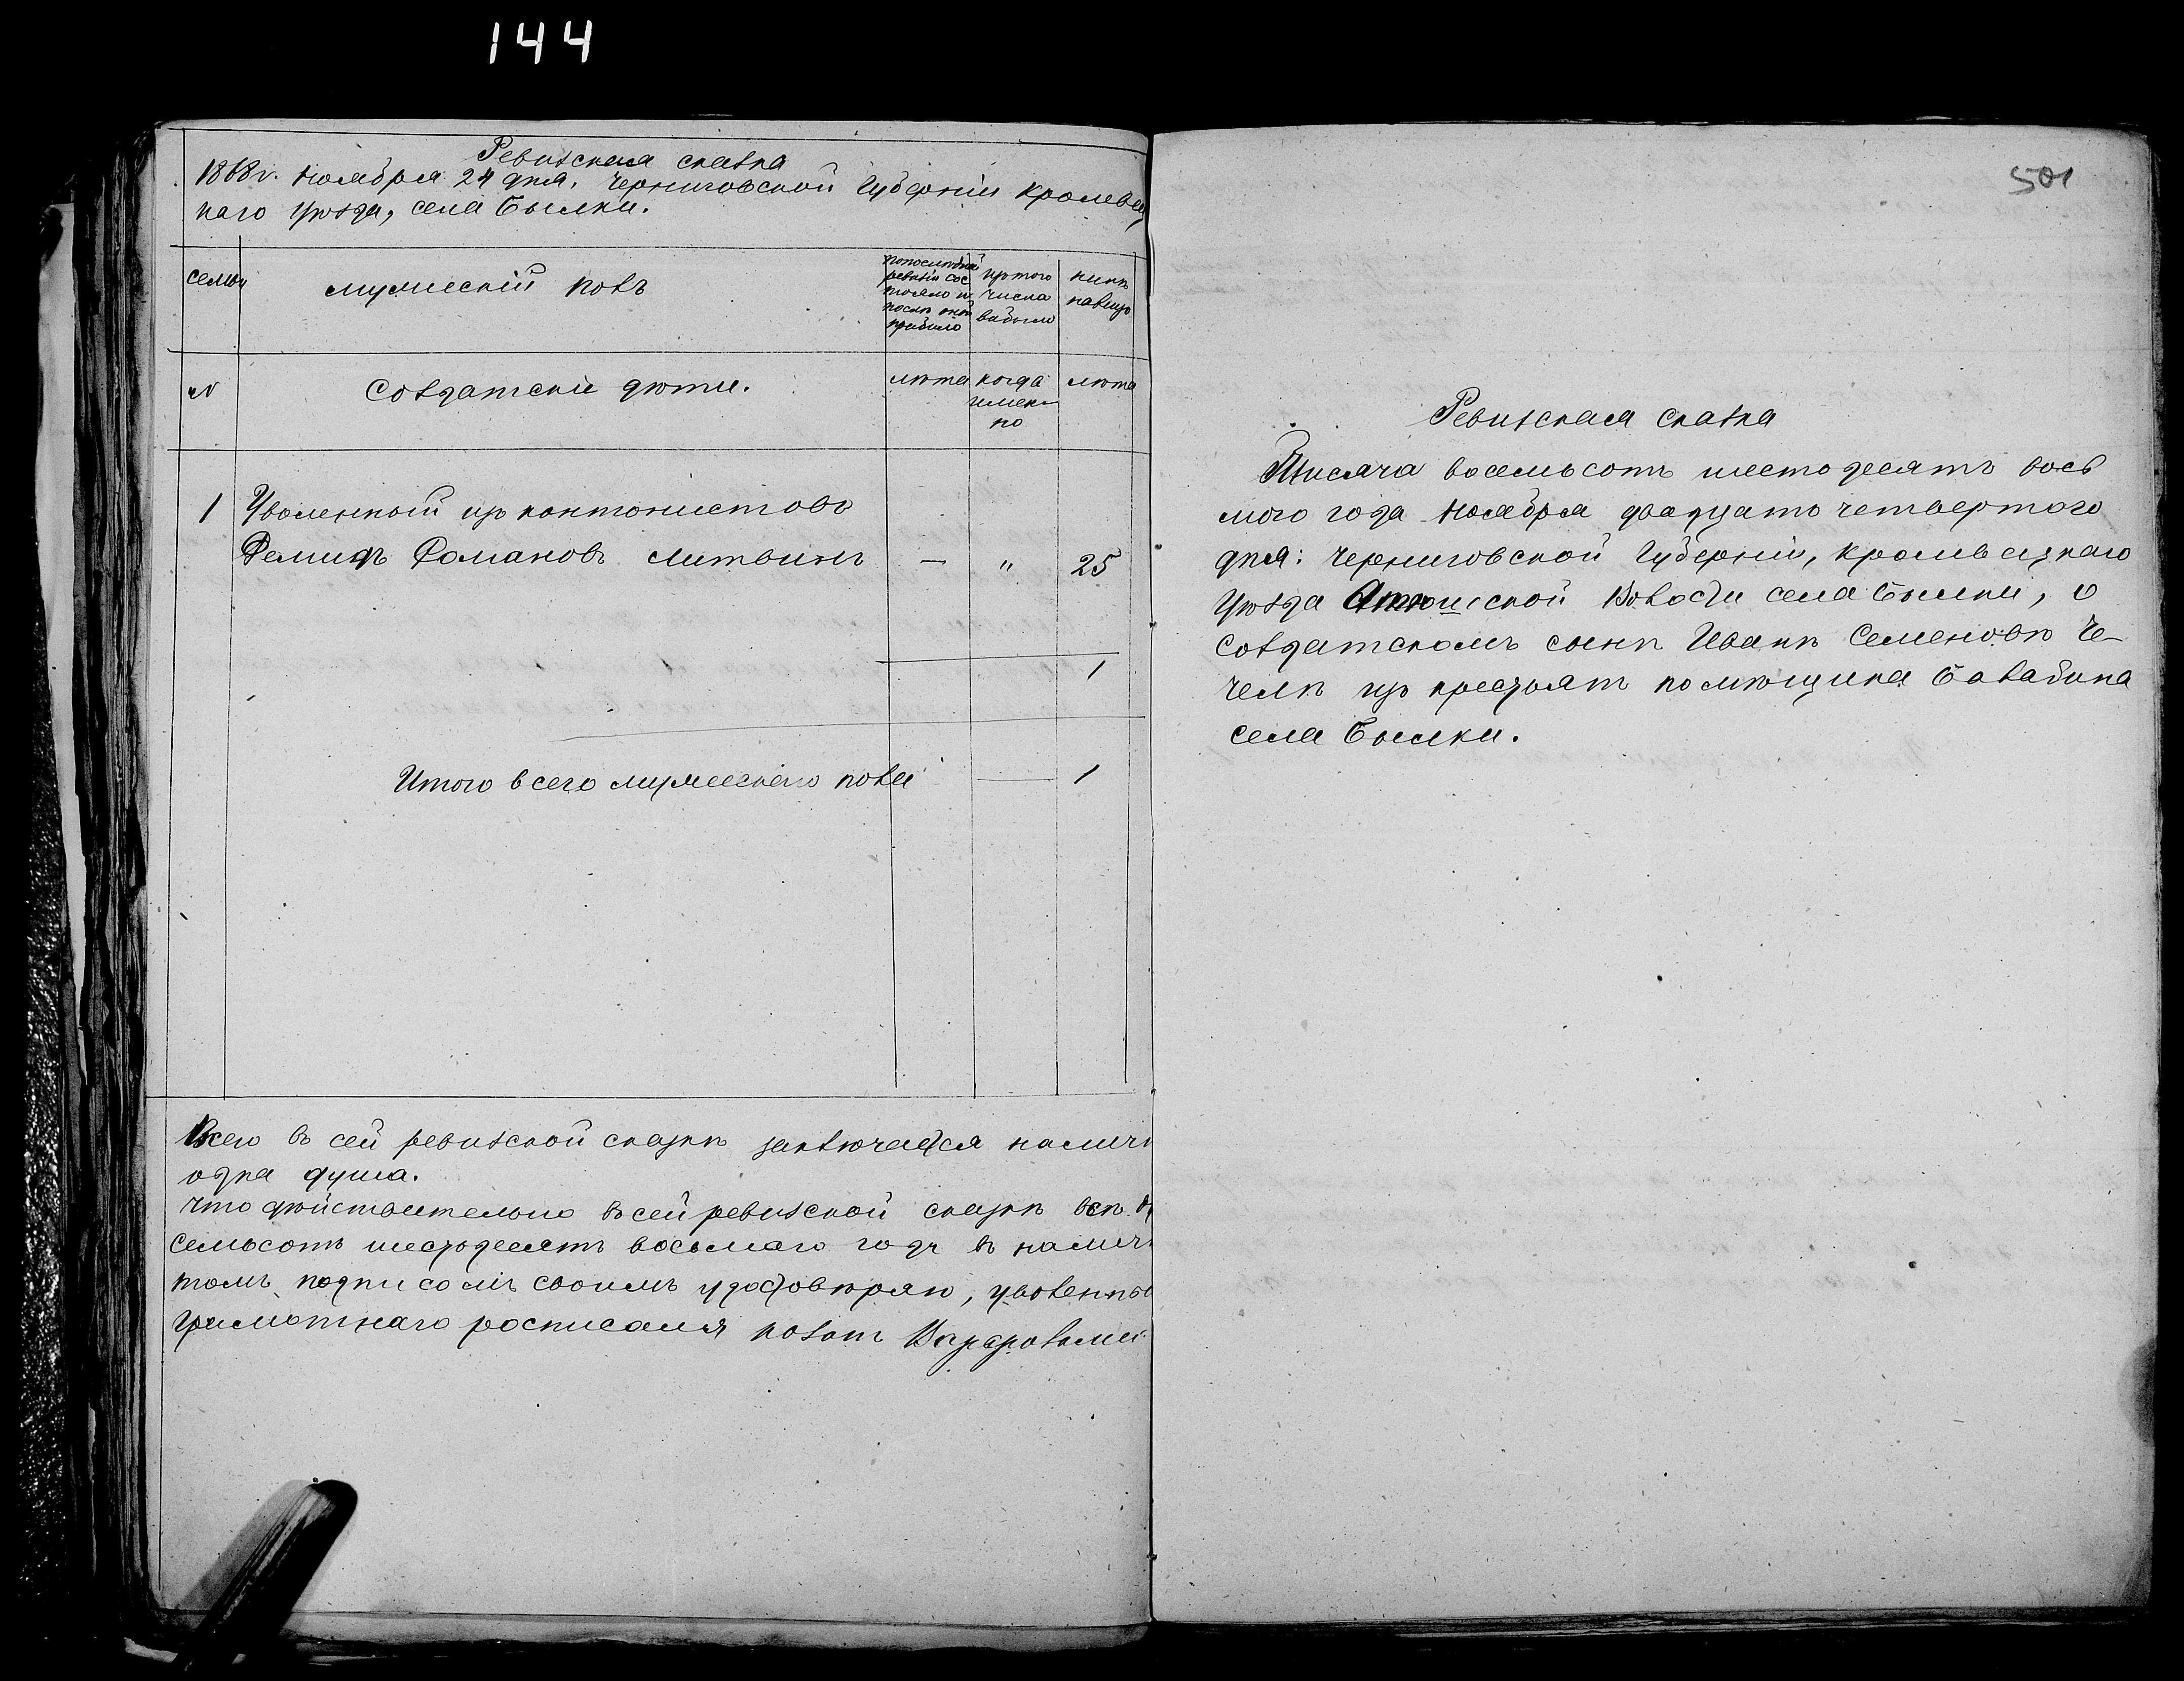 144
Ревизская сказка
1868 г. Ноября 24 дня, Черниговской Губерніи Кролевец
каго уѣзда, села Былки.
семьи
мужескій полъ
по послѣдней ревизіи состояло и послѣ оной прибыло
изъ того числа выбыло
нынѣ на лицо
№
Солдатскіе дѣти.
лѣта
когда именно
лѣта
1 Уволенный изъ кантонистовъ
Романовъ Литвинъ — " 25
1
Итого всего мужескаго пола — 1
Всего въ сей ревизской сказкѣ заключается налич
одна душа.
Что дѣйствительно въ сей ревизской сказкѣ
семьсотъ шестьдесятъ восьмаго года въ налич
томъ подписомъ своимъ удостовѣряю, уволенны
росписался
501
Ревизская сказка
Тысяча восемьсотъ шестьдесятъ вось
мого года Ноября двадцать четвертого
дня: Черниговской Губерніи, Кролевецкаго
Уѣзда Атюшской Волости села Былки, о
солдатскомъ сынѣ Иванѣ Семеновѣ Че-
челѣ изъ крестьянъ помѣщика Балабина
села Былки.